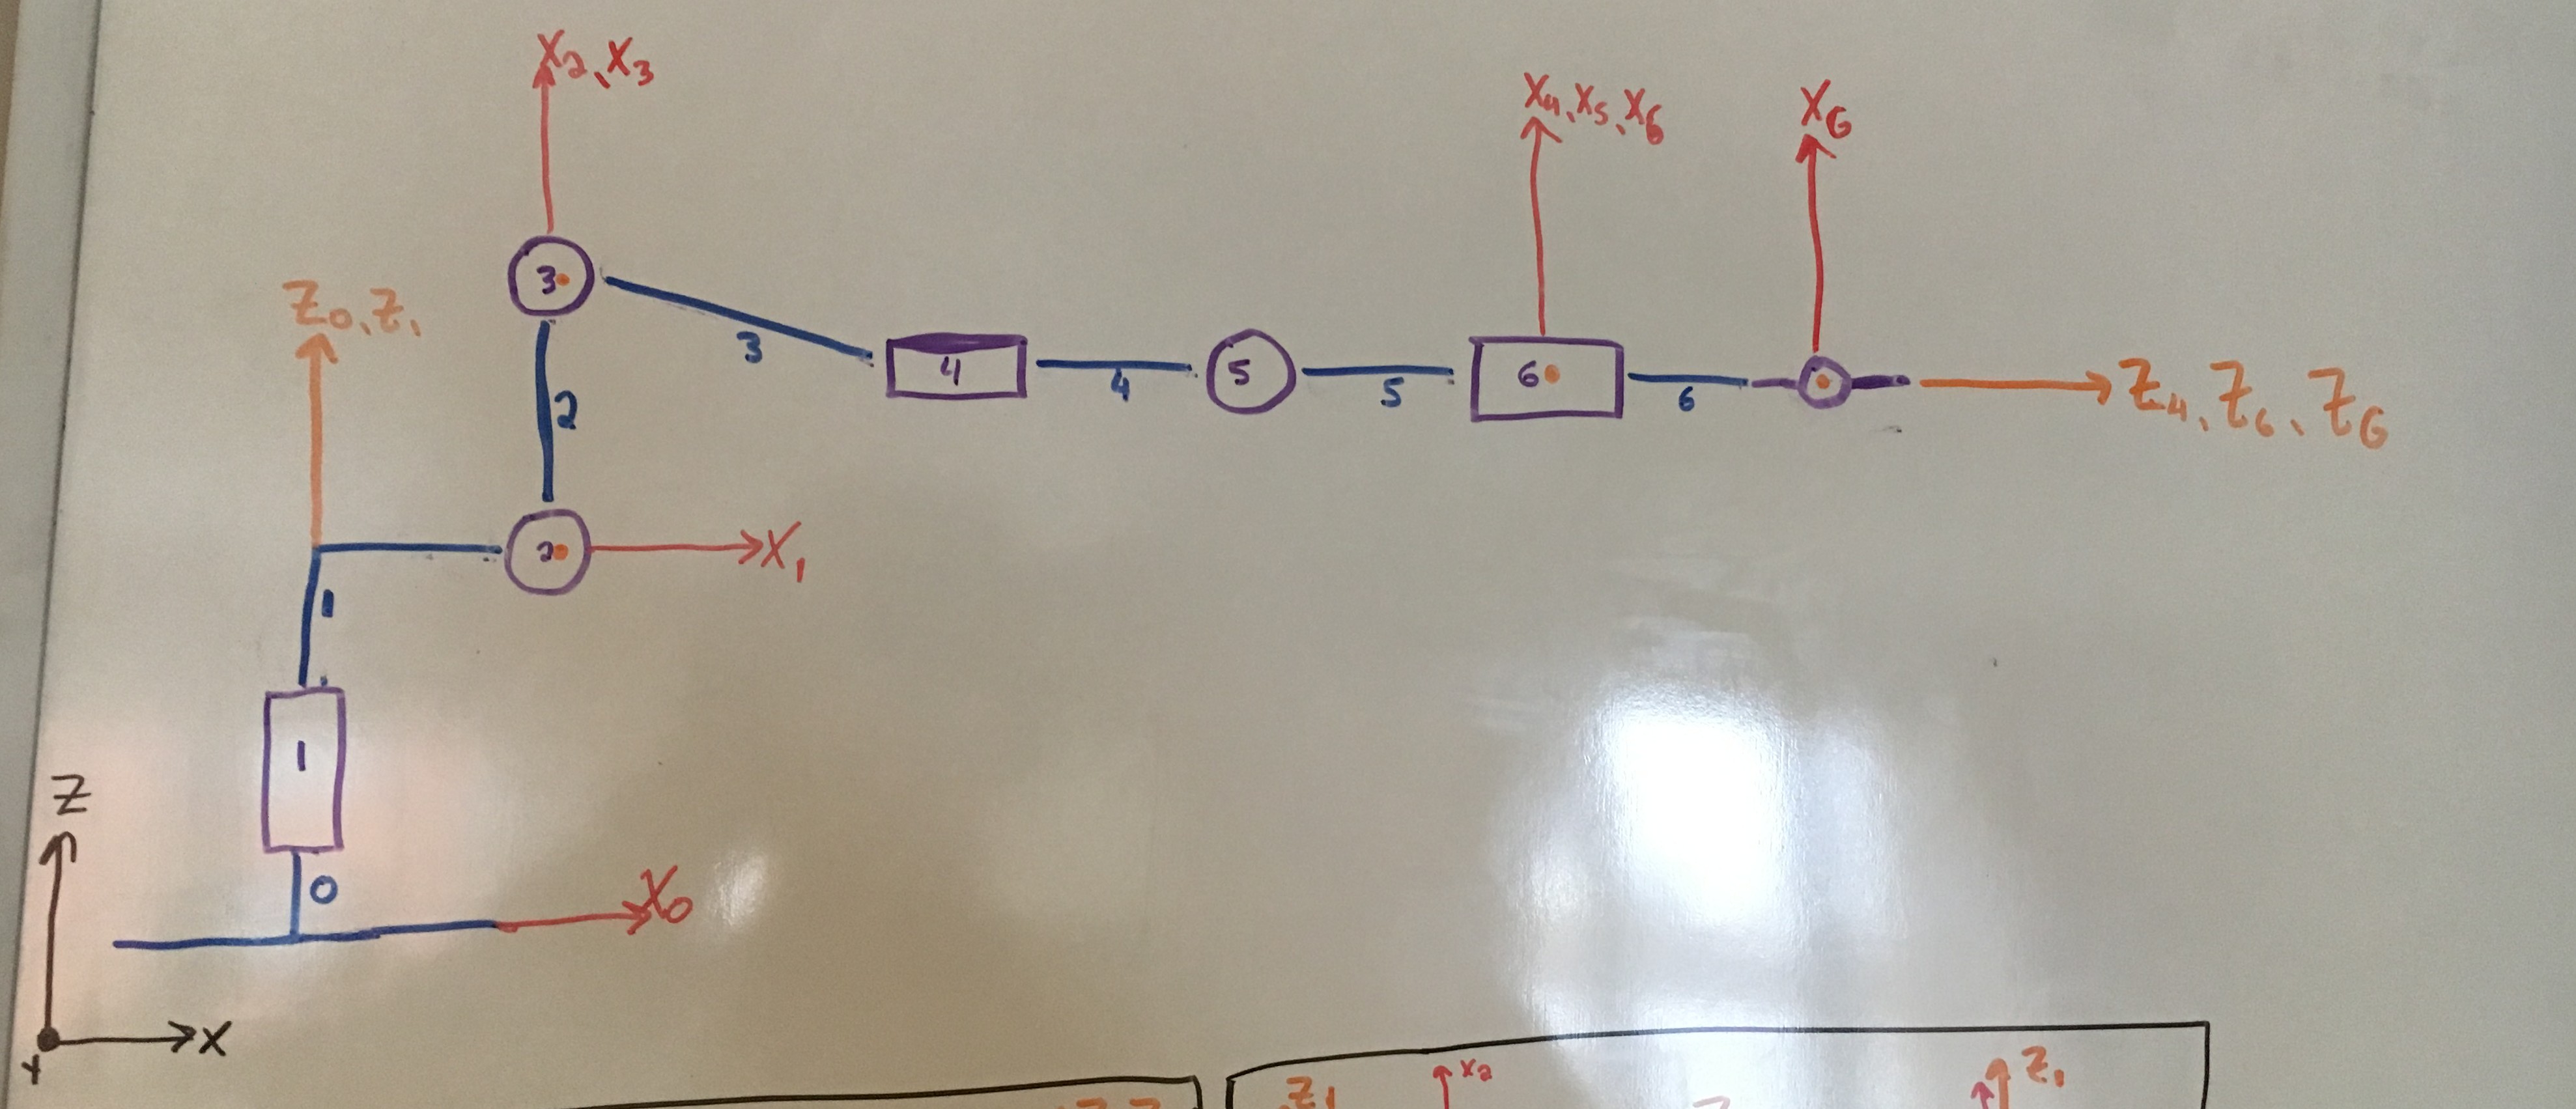 X2, X3
X4, X5, X6
XG
Z0, Z1
3
3
4
4
5
5
6
6
Z4, Z6, ZG
2
2
X1
1
1
Z
0
X0
X
Y
Z1
X2
Z1